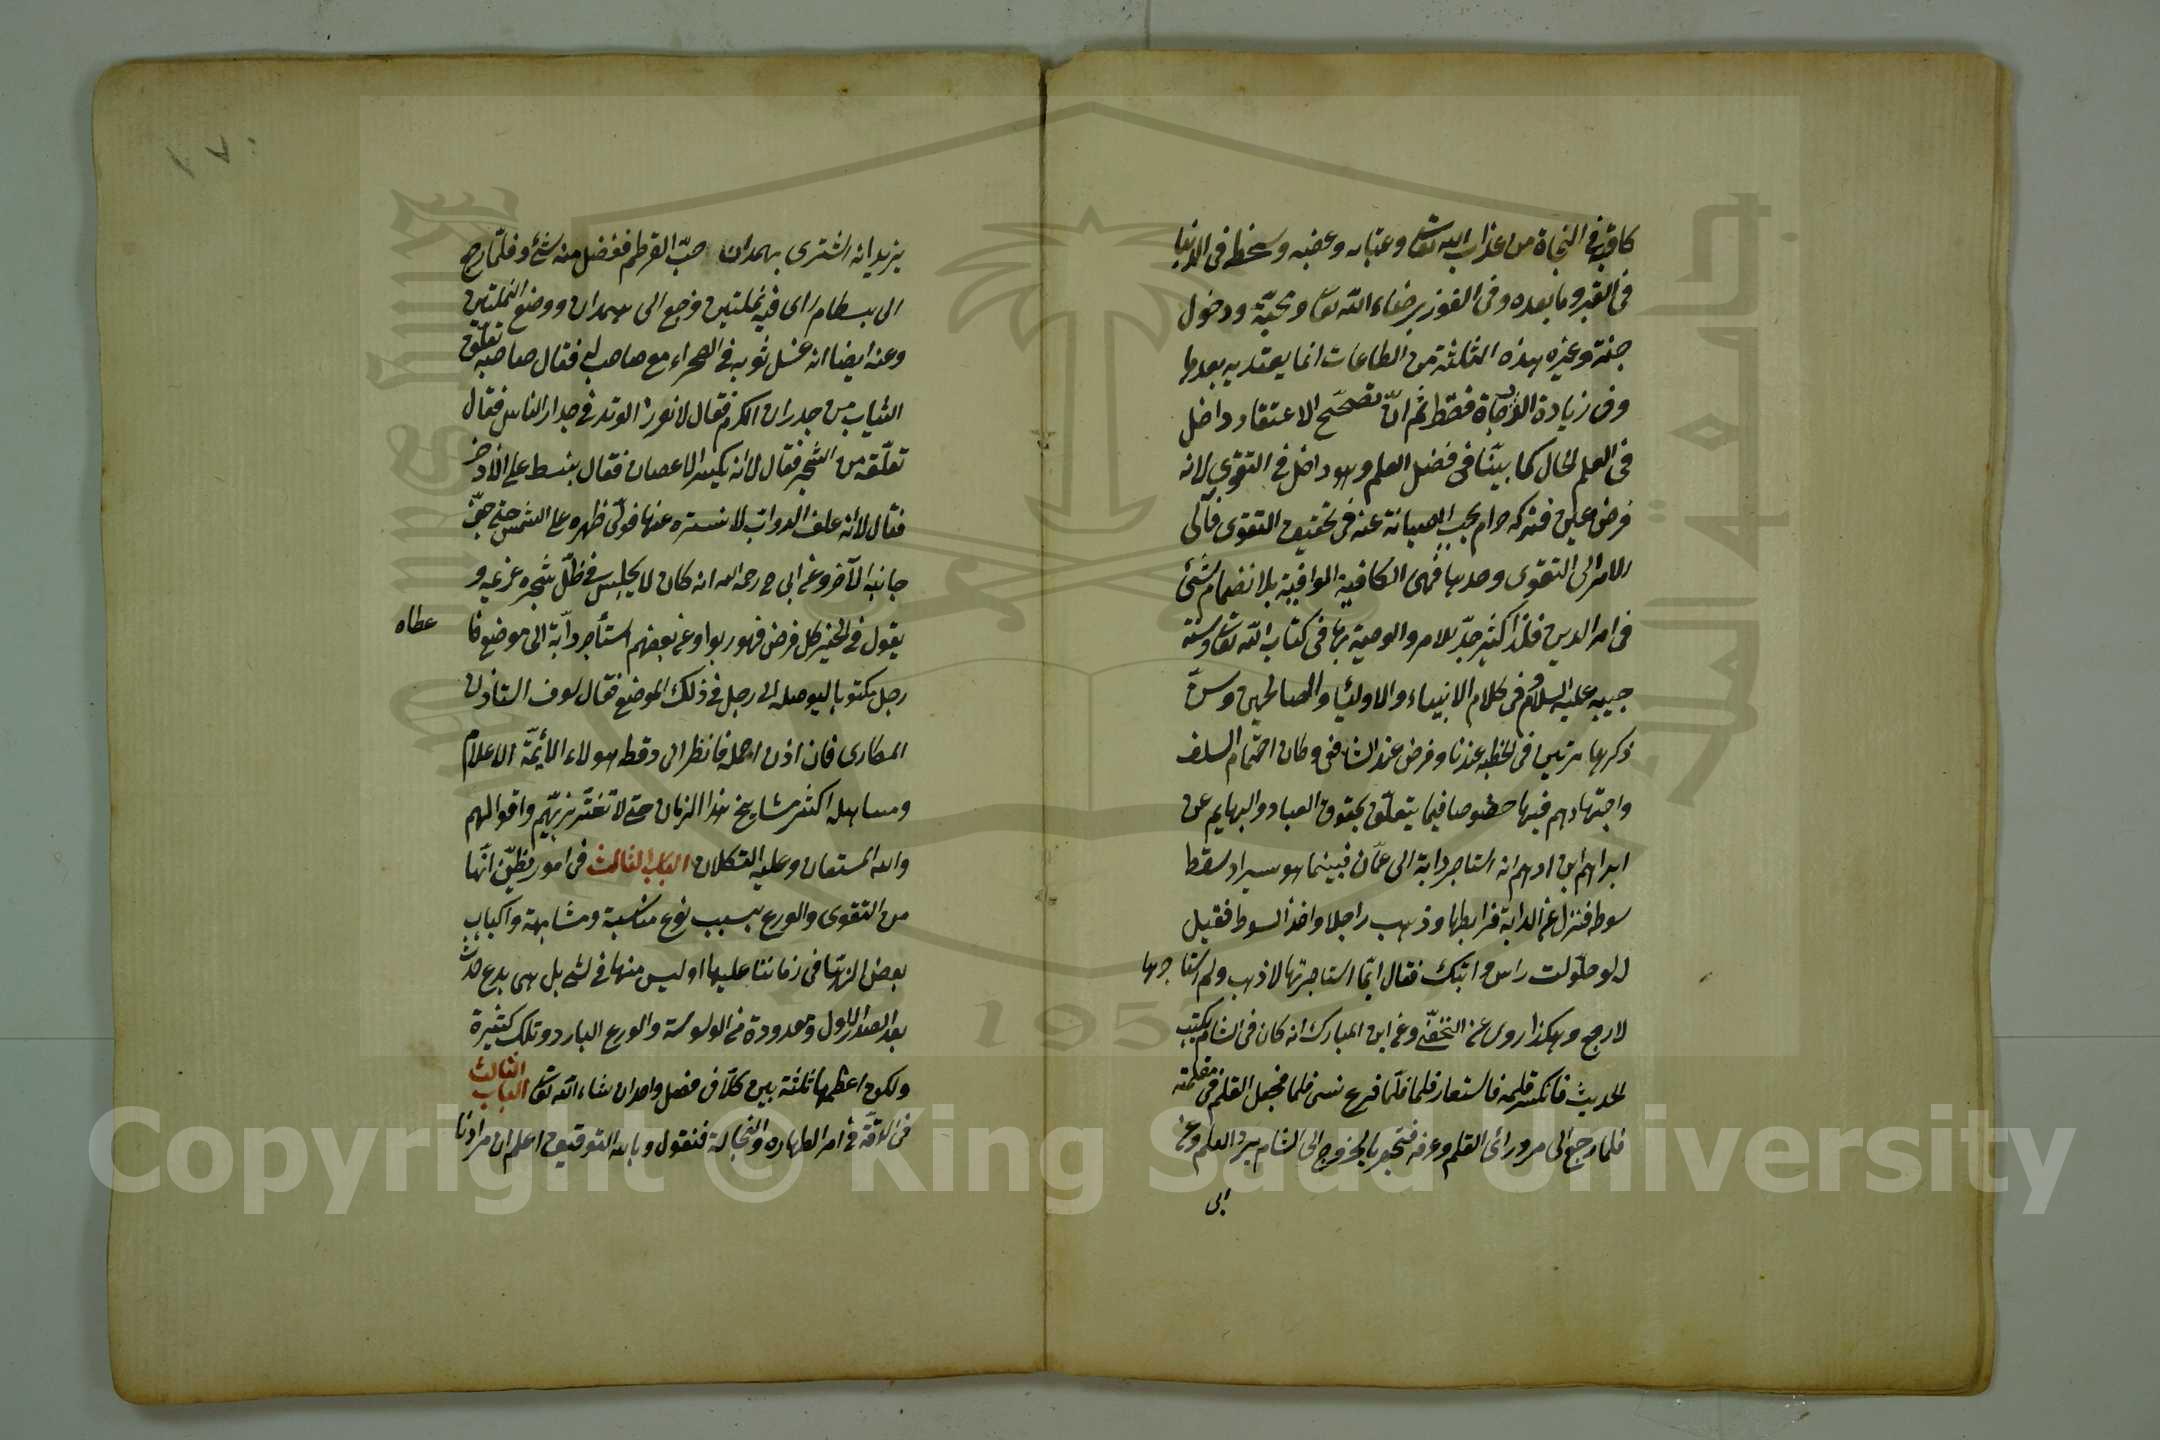 كافية في النجاة من عذاب الله تعا وعتابه وغضبه وسخطه في الدنيا
في القبر وما بعده وفي الفوز برضاء الله تعا ومحبته ودخول
جنة وغيره هذه الثلثة من الطاعات انما يعتد به بعدها
وفي زيادة الدرجات فقط ثم ان تصحيح الاعتقاد داخل
في العلم الحال كما بينا في فضل العلم وهو داخل في التقوى لانه
فرض عين فتركه حرام يجب الصيانة عنه في تحقيق التقوى فآل
الامر الى التقوى وحدها فهي الكافية الوافية بلا انضمام شئ
في امر الدين فلذا كثير جدا الامر والوصية بها في كتاب الله تعا وسنة
حبيبه عليه السلام وفي كلام الانبياء والاولياء والصالحين وسن
ذكرها مرتين في الخطبة عندنا وفرض عند الشافعي وكان اهتمام السلف
واجتهادهم فيها خصوصا فيما يتعلق بحقوق العباد والبهايم عن
ابراهيم ابن ادهم انه استاجر دابة الى عمان فبينما هو يسير اذ سقط
سوطه فنزل عن الدابة فرابطها وذهب راجلا واخذ السوط فقيل
له لو حولت راس دابتك فقال انما استاجرتها لاذهب ولم استاجرها
لارجع وهكذا روى عن النخعي وعن ابن المبارك انه كان في الشام يكتب
الحديث فانكسر قلمه فاستعار قلما فلما فرغ نسى فلما فجعل القلم في مقلمته
فلما رجع الى مرو راى القلم وعرفه فتجهز بالخروج الى الشام يرد القلم وعن
ابى
يزيد انه اشترى بهمدان حب القرطم ففضل منه شئ وفلما رجع
الى بسطام راى فيه نملتين فرجع الى همدان ووضع النملتين
وعنه ايضا انه غسل ثوبه في الصحراء مع صاحب له فقال صاحبه تعلق
الثياب من جدران الكرم فقال لا نغرز الوتد في جدار الناس فقال
تعلقه من الشجر فقال لا انه يكسر الاغصان فقال نبسط على الارض
فقال لا انه علف الدواب لا نستره عنها فولى ظهره على الشمس حتى جف
جانبه الآخر وعن ابى ح رحمه الله انه كان لا يجلس في ظل شجره غريمه و
يقول في الخبر كل قرض فهو ربوا وعن بعضهم استأجر دآبة الى موضع فا
عطاه
رجل مكتوبا ليوصله الى رجل في ذلك الموضع فقال سوف استاذن
المكارى فان اذن احمله فانظر الى دقة هولاء الأيمة الاعلام
ومساهلة اكثر مشايخ هذا الزمان حتى لا تغتر بزيهم واقوالهم
والله المستعان وعليه التكلان الباب الثالث في امور يظن انها
من التقوى والورع بسبب نوع مناسبة ومشابهة واكباب
بعض الزهاد في زماننا عليها او ليس منها في شئ بل هى بدع حدثت
بعد الصدر الاول ومعدودة من الوسوسة والورع البارد وتلك كثيرة
ولكن اعظمها ثلثة نبين كلا في فصل واحد ان شاء الله تعا الباب الثالث
في الدقة في امر الطهارة والنجاسة فنقول وبالله التوفيق اعلم ان مرادنا
Copyright © King Saud University
1957